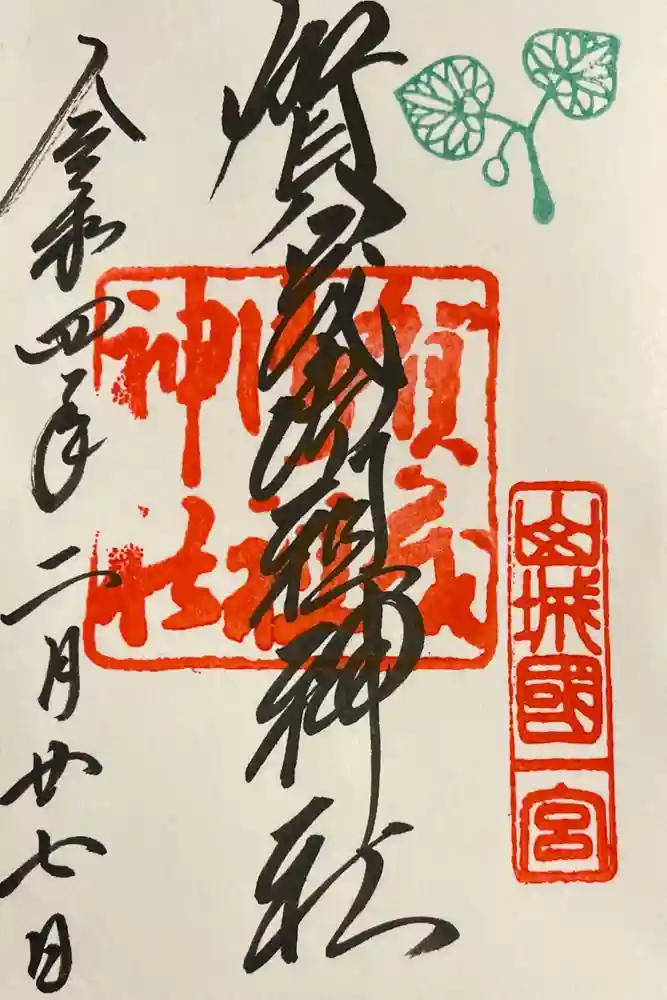 山城國一宮
賀茂御祖神社
賀茂御祖神社
令和四年二月廿七日